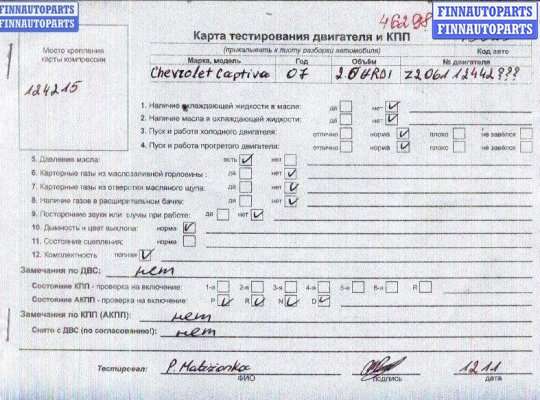 FINNAUTOPARTS
FINNAUTOPARTS
46298
Карта тестирования двигателя и КПП
(прикалывать к листу разборки автомобиля)
Код авто
Место крепления карты компрессии
Марка, модель Год Объём № двигателя
Chevrolet Captiva 07 2.0 VRDI Z20611 2442???
124215
1. Наличие охлаждающей жидкости в масле: да нет
2. Наличие масла в охлаждающей жидкости: да нет
3. Пуск и работа холодного двигателя: отлично норма плохо не завёлся
4. Пуск и работа прогретого двигателя: отлично норма плохо не завёлся
5. Давление масла: есть нет
6. Картерные газы из маслозаливной горловины: да нет
7. Картерные газы из отверстия масляного щупа: да нет
8. Наличие газов в расширительном бачке: да нет
9. Посторонние звуки или стуки при работе: да нет
10. Дымность и цвет выхлопа: норма
11. Состояние сцепления: норма
12. Комплектность полная
Замечания по ДВС: нет
Состояние КПП - проверка на включение: 1-я 2-я 3-я 4-я 5-я 6-я R
Состояние АКПП - проверка на включение P R N D
Замечания по КПП (АКПП): нет
Снято с ДВС (по согласованию!): нет
Тестировал: P. Matizonka 1211
ФИО подпись дата
FINNAUTOPARTS
FINNAUTOPARTS